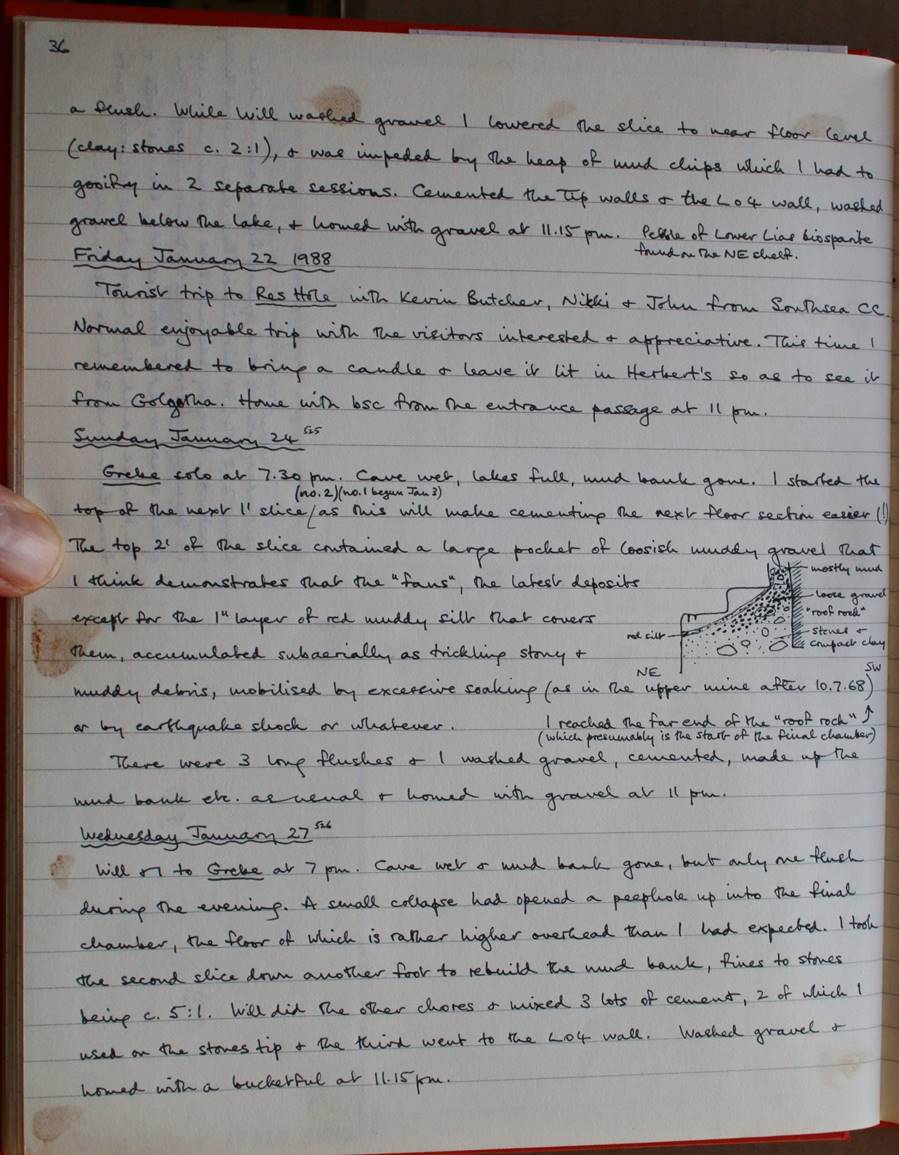 36
a flush. While Will washed gravel I lowered the slice to near floor level
(clay: stones c. 2:1), & was impeded by the heap of mud chips which I had to
gooify in 2 separate sessions. Cemented the tip walls & the L04 wall, washed
gravel below the lake, & homed with gravel at 11.15 pm. Pebble of Lower Lias biosparite
found on the NE shelf.
Friday January 22 1988
Tourist trip to Res Hole with Kevin Butcher, Nikki & John from Southsea CC.
Normal enjoyable trip with the visitors interested & appreciative. This time I
remembered to bring a candle & leave it lit in Herbert's so as to see it
from Golgotha. Home with bsc from the entrance passage at 11 pm.
Sunday January 24 525
Grebe solo at 7.30 pm. Cave wet, lakes full, mud bank gone. I started the
(no. 2) (no. 1 begun Jan 3)
top of the next 1' slice / as this will make cementing the next floor section easier (!)
The top 2' of the slice contained a large pocket of loosish muddy gravel that
I think demonstrates that the "fans", the latest deposits
except for the 1" layer of red muddy silt that covers
them, accumulated subaerially as trickling stony &
muddy debris, mobilised by excessive soaking (as in the upper mine after 10.7.68)
or by earthquake shock or whatever.
mostly mud
loose gravel
"roof rock"
stones &
compact clay
red silt
NE
SW
I reached the far end of the "roof rock" ↑
(which presumably is the start of the final chamber)
There were 3 long flushes & I washed gravel, cemented, made up the
mud bank etc. as usual & homed with gravel at 11 pm.
Wednesday January 27 526
Will & I to Grebe at 7 pm. Cave wet & mud bank gone, but only one flush
during the evening. A small collapse had opened a peephole up into the final
chamber, the floor of which is rather higher overhead than I had expected. I took
the second slice down another foot to rebuild the mud bank, fines to stones
being c. 5:1. Will did the other chores & mixed 3 lots of cement, 2 of which I
used on the stones tip & the third went to the L04 wall. Washed gravel &
homed with a bucketful at 11.15 pm.